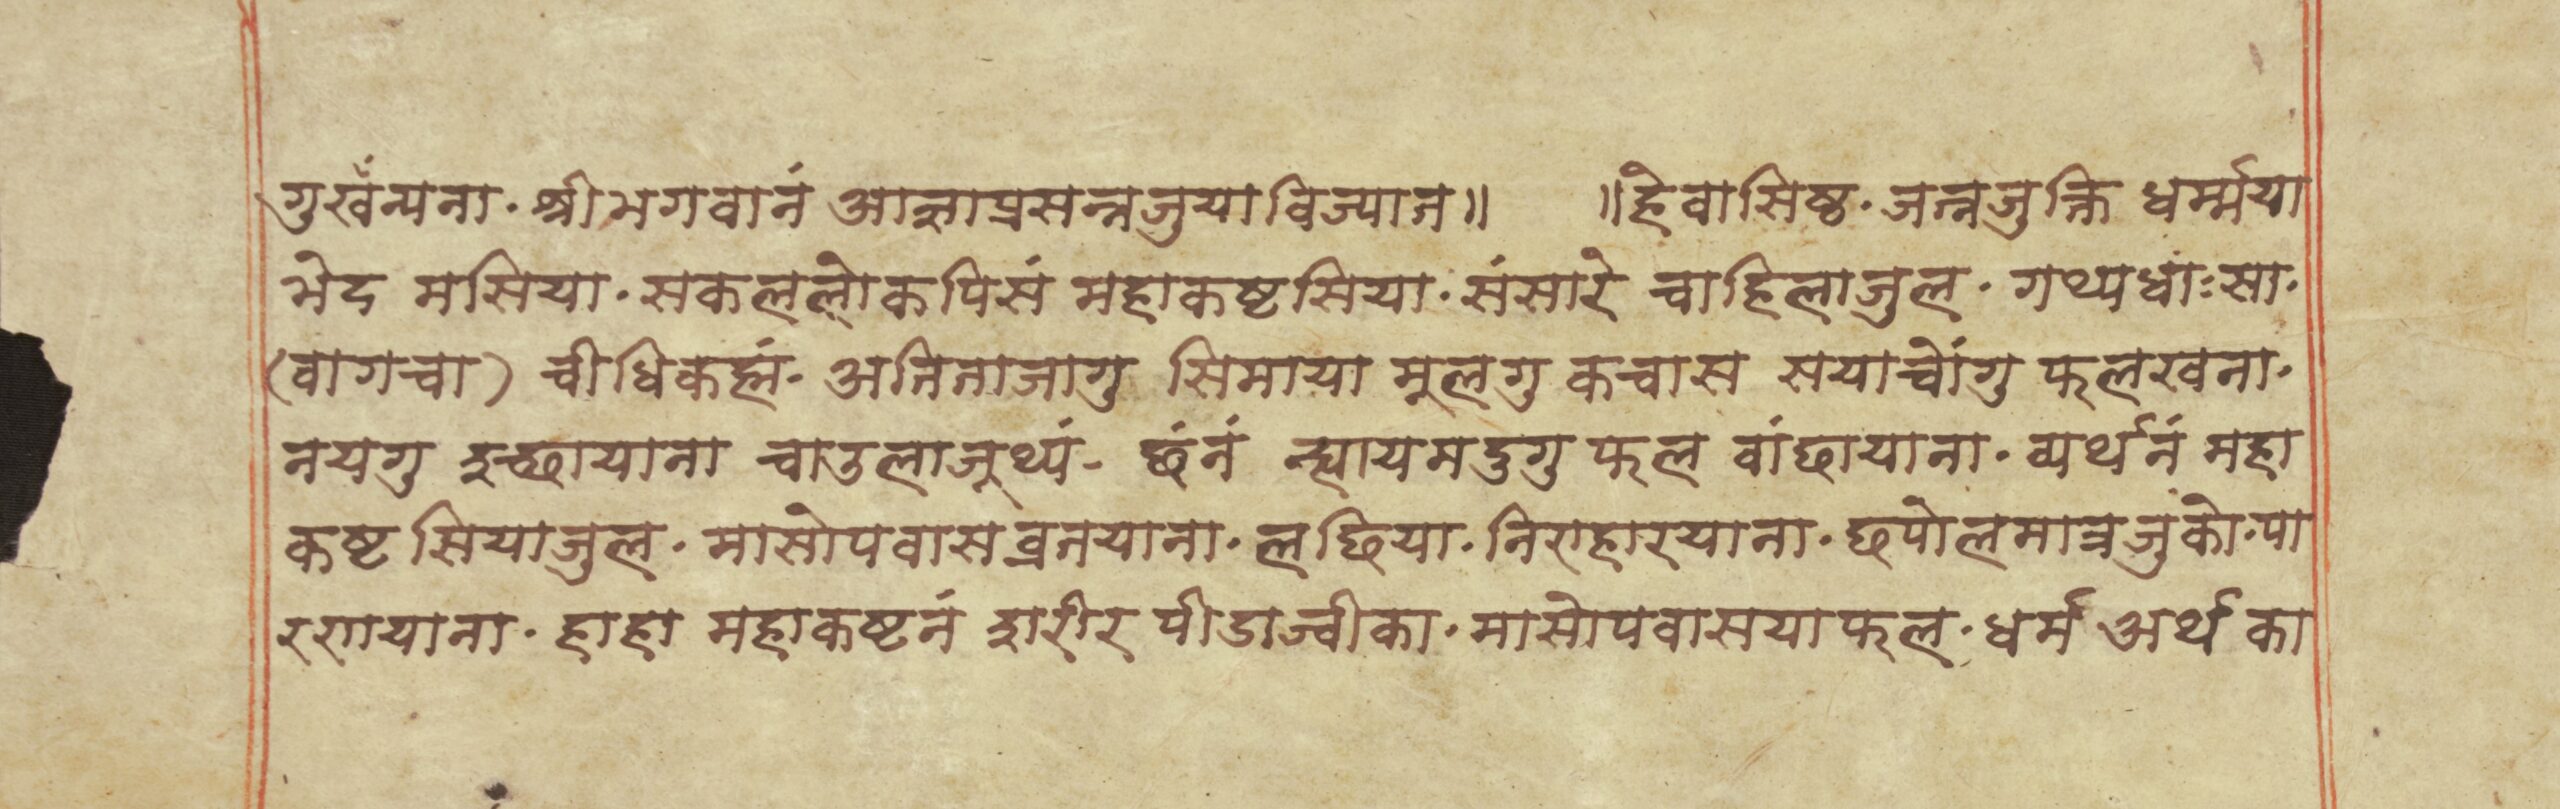 गुखँन्यना. श्रीभगवानं आज्ञाप्रसन्नजुयाविज्यात॥ ॥हेवासिष्ठ. जन्नजुक्ति धर्म्मया
भेद मसिया. सकललोकपिसं महाकष्टसिया. संसारे चाहिलाजुल. गथ्यधाःसा.
(वागचा) चीधिकह्मं. अतिताजागु सिमाया मूलगु कचास सयाचोंगु फलखना.
नयगु इच्छायाना चाउलाजूथ्यं- छंनं न्यायमदुगु फल वांछायाना. व्यर्थनं महा
कष्ट सियाजुल. मासोपवासव्रतयाना. लछिया. निराहारयाना. छपोलमात्रजुको. पा
रणयाना. हाहा महाकष्टनं शरीर पीडाज्वीका. मासोपवासयाफल. धर्म अर्थ का